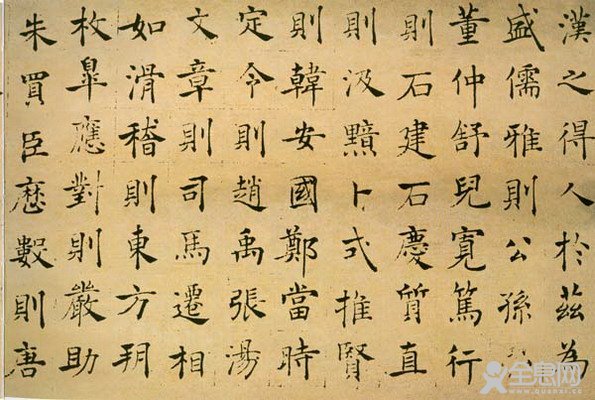 漢之得人於茲為
盛儒雅則公孫
董仲舒兒寬篤行
則石建石慶質直
則汲黯卜式推賢
則韓安國鄭當時
定令則趙禹張湯
文章則司馬遷相
如滑稽則東方朔
枚皐應對則嚴助
朱買臣歷數則唐
全惠网